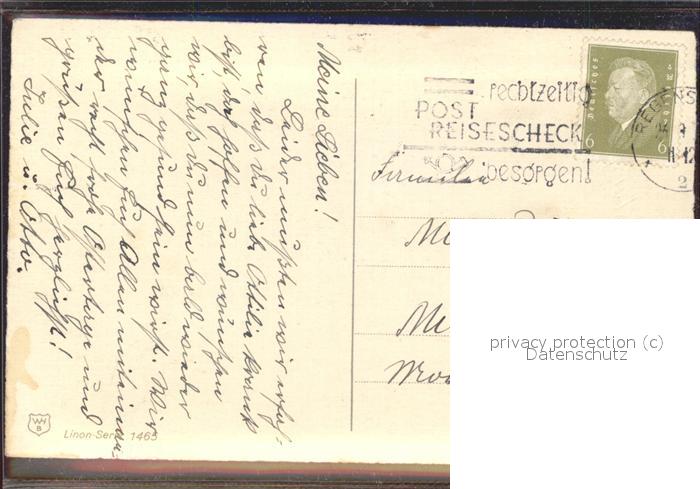 Meine Lieben!
Leider mußten wir erfah-
ren daß du liebe Ottilie krank
bist, das hoffen und wünschen
wir daß du nun bald wieder
ganz gesund sein wirst. Wir
wünschen Euch Allen miteinan-
der recht frohe Ostertage und
grüßen Euch herzlichst!
Julie u. Otto.
Linon-Serie 1465
WH
B
rechtzeitig
POST
REISESCHECK
besorgen!
Deutsches Reich
6 6
REGENS
12
2
Familie
privacy protection (c)
Datenschutz